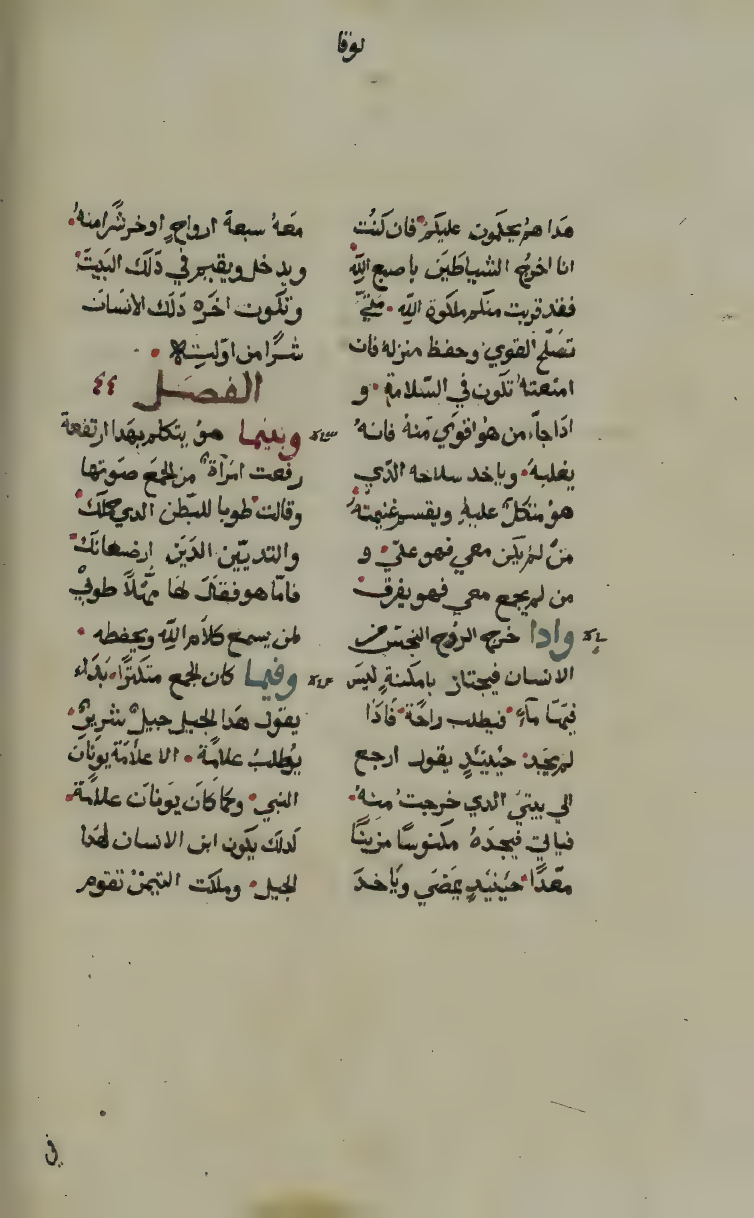 لوقا
هدا هم يحكمون عليكم فان كنت
انا اخرج الشياطين باصبع الله
فقد قربت منكم ملكوة الله متي
تصلح القوي وحفظ منزله فان
امتعته تكون في السلامة و
اداجاء من هو اقوي منه فانه
يغلبه وياخد سلاحه الدي
هو متكل عليه ويقسم غنيمته
من لم يكن معي فهو علي و
من لم يجمع معي فهو يفرق
وادا خرج الروح النجس من
الانسان فيجتاز بامكنة ليس
فيها ماء فيطلب راحة فادا
لم يجد حينيد يقول ارجع
الي بيتي الدي خرجت منه
فياتي فيجده مكنوسا مزينا
معدا حينيد يمضي وياخد
معه سبعة ارواح اخر شرا منه
ويدخل ويقيم في دلك البيت
وتكون اخرة دلك الانسان
شرا من اوليته
الفصل ٤٤
وبينما هو يتكلم بهدا ارتفعة
رفعت امراة من الجمع صوتها
وقالت طوبا للبطن الدي حملك
والتديين الدين ارضعانك
فاما هو فقال لها مهلا طوبي
لمن يسمع كلام الله ويحفظه
وفيما كان الجمع متكترا بداء
يقول هدا الجيل جيل شرير
يطلب علامة الا علامة يونان
النبي وكما كان يونان علامة
لدلك يكون ابن الانسان لهدا
الجيل وملكت التيمن تقوم
في